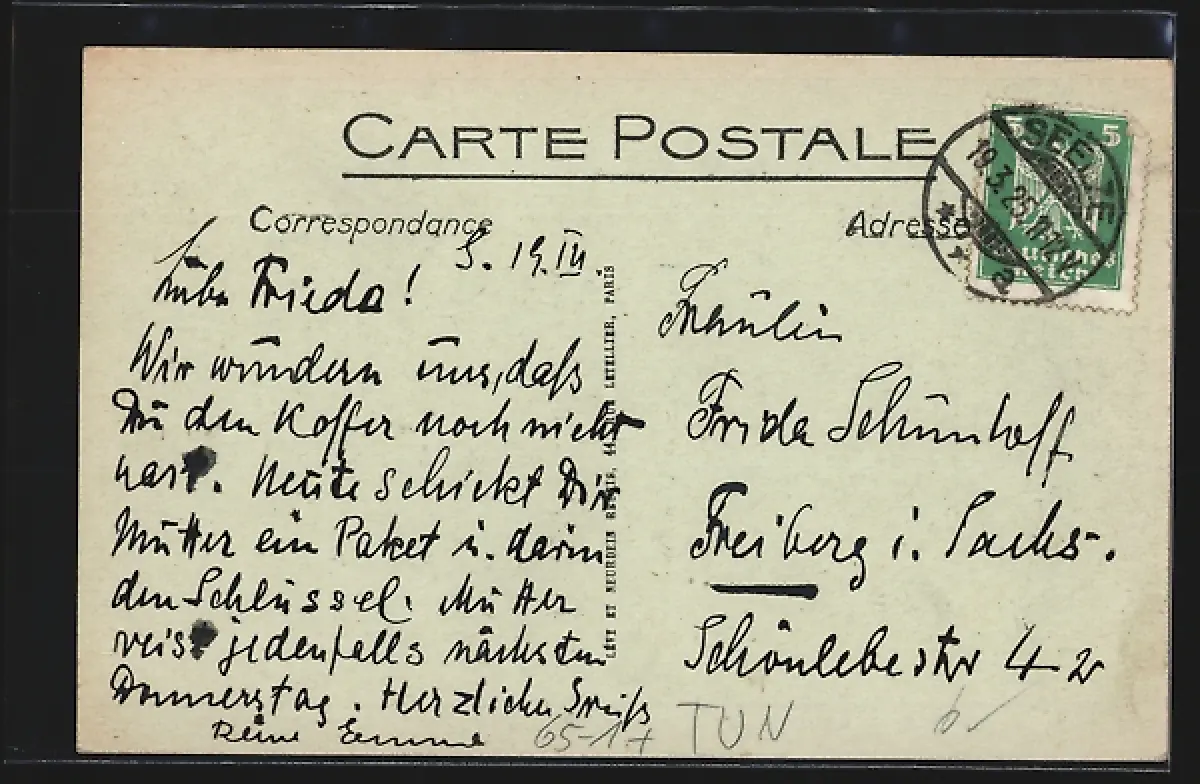 CARTE POSTALE
Correspondance
Adresse
5 5
SEELZE
19.3.25.11-12V.
* a
Deutsches
Reich
S. 19.III
Liebe Frieda!
Wir wundern uns, daß
Du den Koffer noch nicht
hast. Heute schickt Dir
Mutter ein Paket u. darin
den Schlüssel. Mutter
reist jedenfalls nächsten
Donnerstag. Herzlichen Gruß
Deine Emma
LÉVY ET NEURDEIN RÉUNIS, 44, RUE LETELLIER, PARIS
Fräulein
Frida Schünhoff
Freiberg i. Sachs.
Schönlebestr 42
65-17 TUN